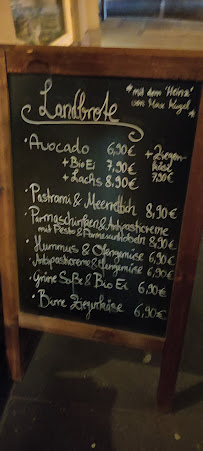 Landbrote
*mit dem "Heinz"
von Max Kugel*
· Avocado 6,90€
+ Bio Ei 7,90€
+ Lachs 8,90€
+ Ziegen-
käse
7,90€
· Pastrami & Meerrettich 8,90€
· Parmaschinken & Antipasticreme
mit Pesto & Parmesanhobeln 8,90€
· Hummus & Ofengemüse 6,90€
· Antipasticreme & Ofengemüse 6,90€
· Grüne Soße & Bio Ei 6,90€
· Birne Ziegenkäse 6,90€